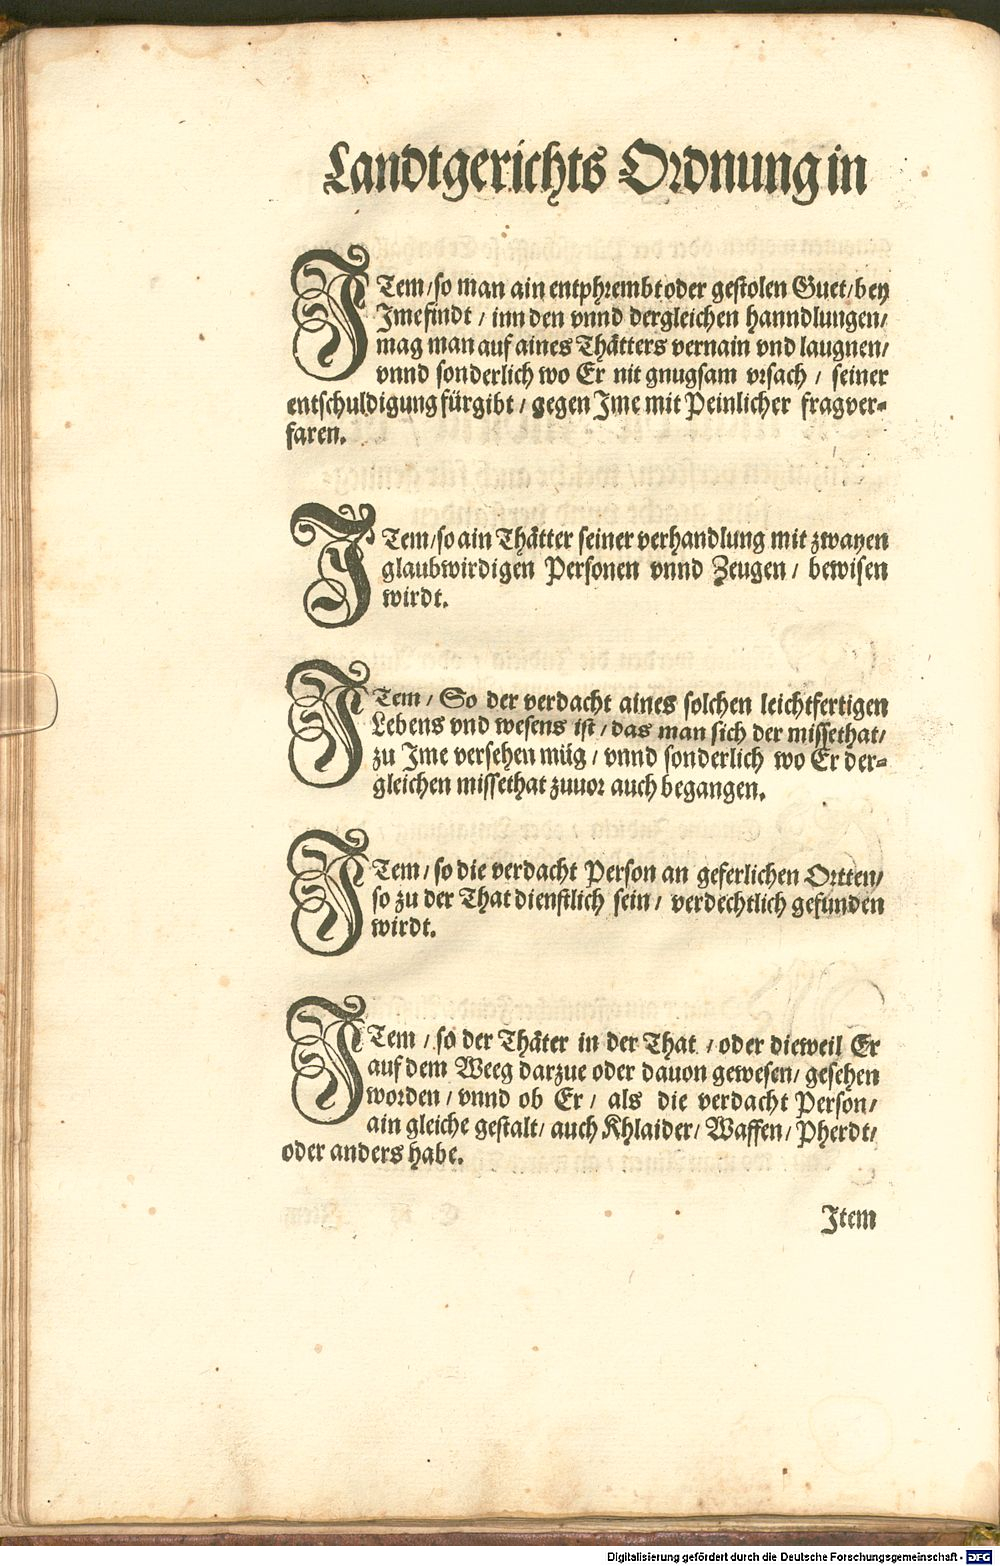 Landtgerichts Ordnung in
ITem/so man ain entphrembt oder gestolen Guet/bey
Ime findt / inn den vnnd dergleichen hanndlungen/
mag man auf aines Thätters vernain vnd laugnen/
vnnd sonderlich wo Er nit gnugsam vrsach / seiner
entschuldigung fürgibt / gegen Ime mit Peinlicher fragver-
faren.
ITem/so ain Thätter seiner verhandlung mit zwayen
glaubwirdigen Personen vnnd Zeugen / bewisen
wirdt.
ITem / So der verdacht aines solchen leichtfertigen
Lebens vnd wesens ist / das man sich der missethat/
zu Ime versehen müg / vnnd sonderlich wo Er der-
gleichen missethat zuuor auch begangen.
ITem / so die verdacht Person an geferlichen Ortten/
so zu der That dienstlich sein / verdechtlich gefunden
wirdt.
ITem / so der Thäter in der That / oder dieweil Er
auf dem Weeg darzue oder dauon gewesen/ gesehen
worden / vnnd ob Er / als die verdacht Person/
ain gleiche gestalt/ auch Khlaider/ Waffen/ Pherdt/
oder anders habe.
Item
Digitalisierung gefördert durch die Deutsche Forschungsgemeinschaft - DFG